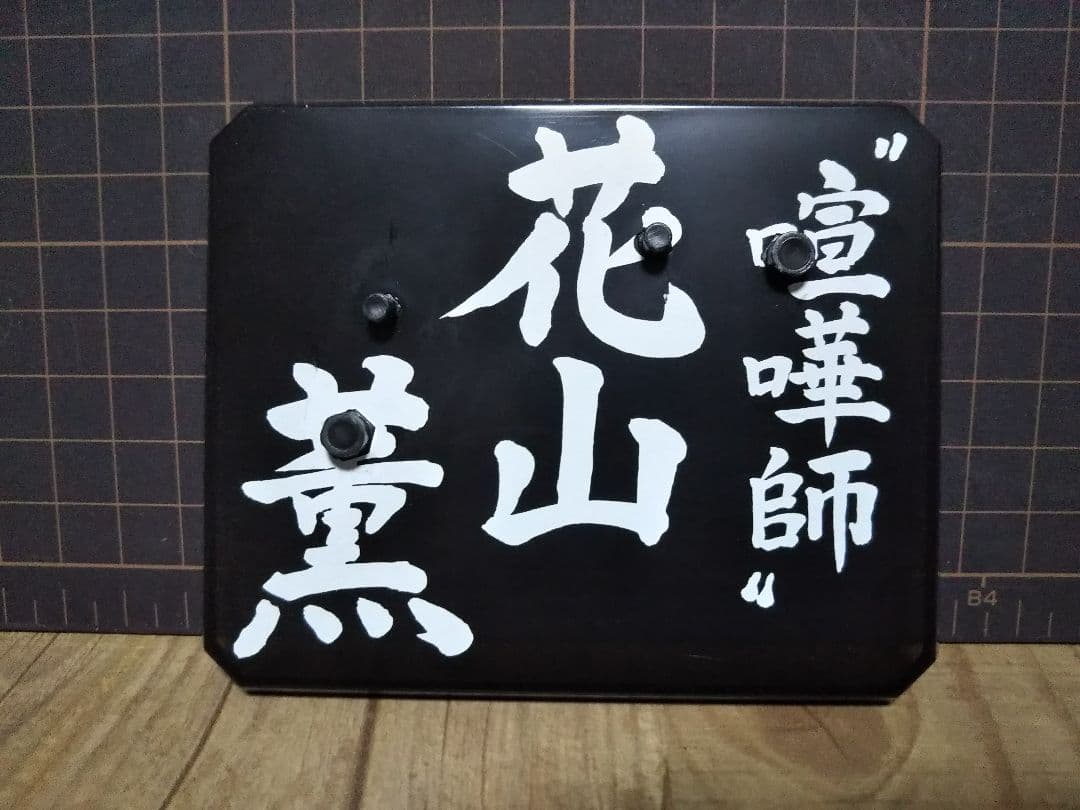 〝喧嘩師〟
花山
薫
B4